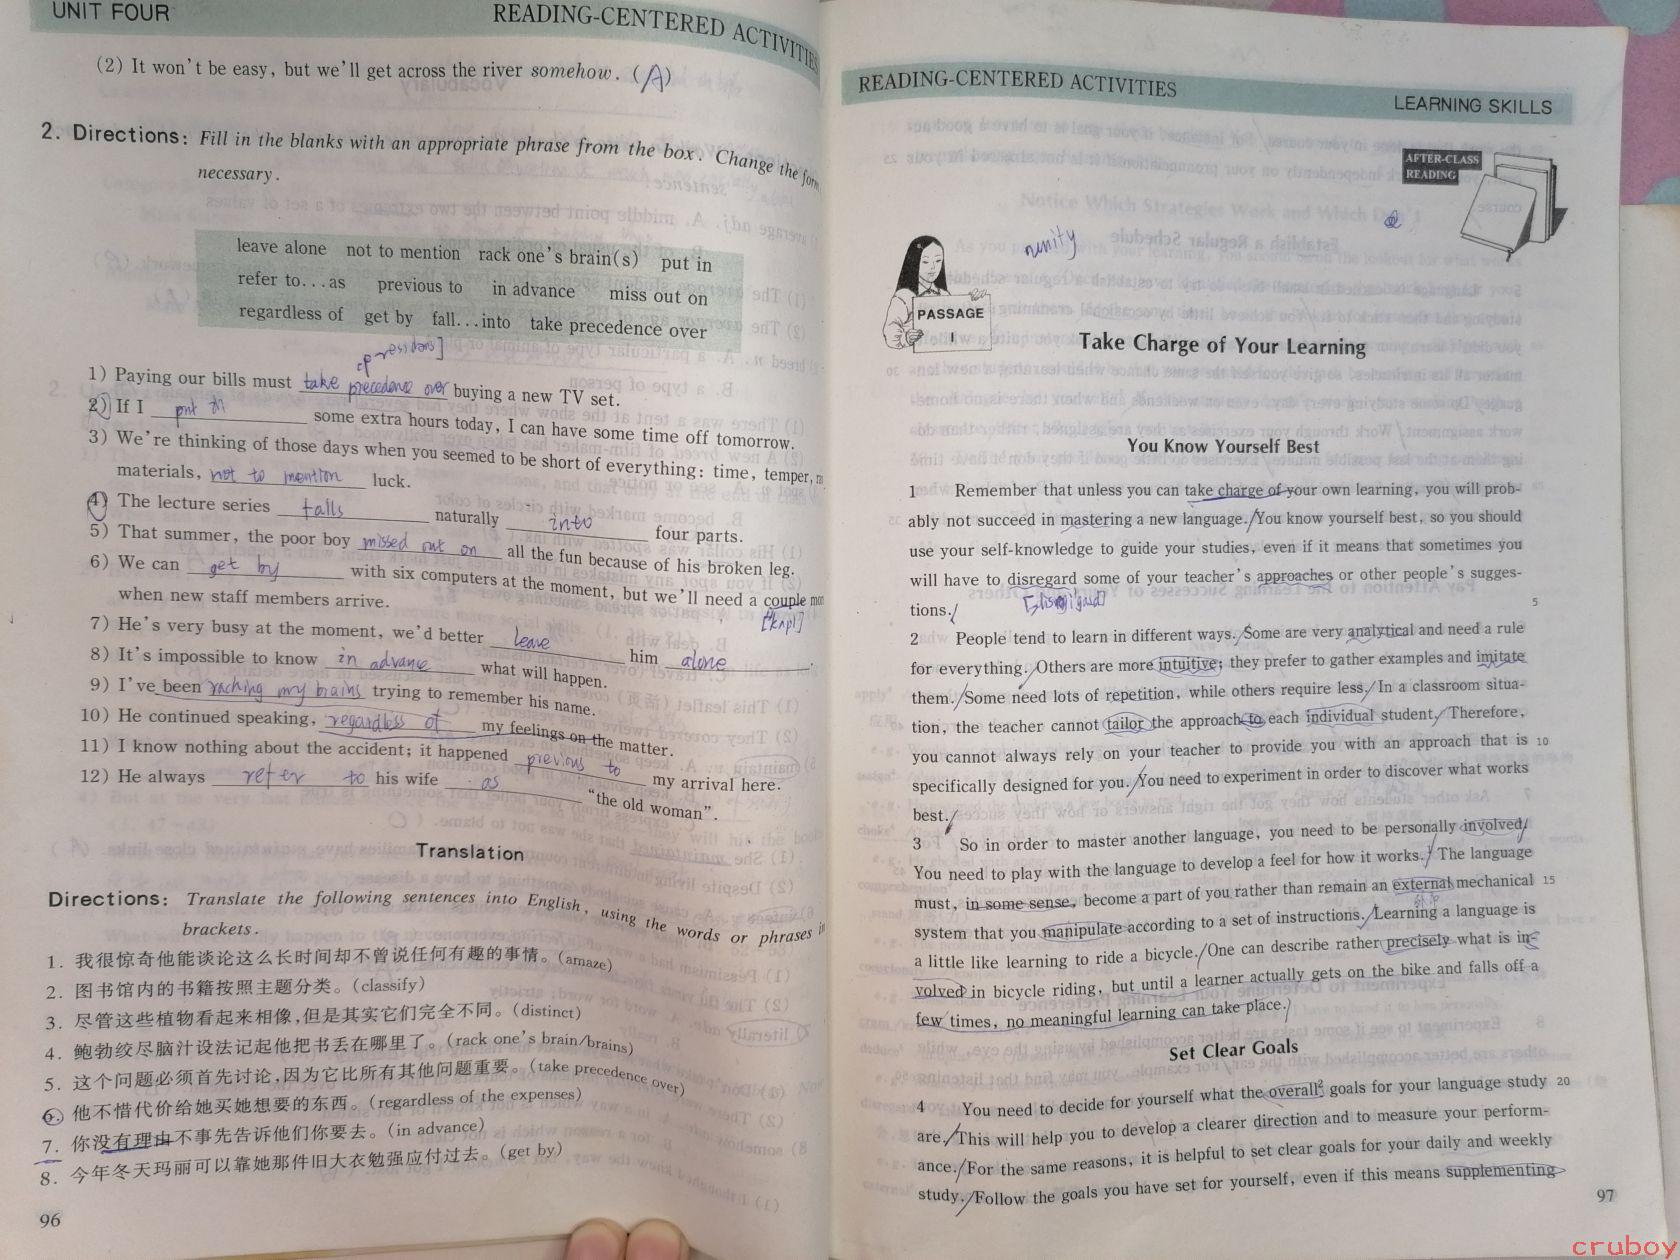 UNIT FOUR
READING-CENTERED ACTIVITIES
(2) It won't be easy, but we'll get across the river somehow. (A)
2. Directions: Fill in the blanks with an appropriate phrase from the box. Change the form
necessary.
leave alone not to mention rack one's brain(s) put in
refer to...as previous to in advance miss out on
regardless of get by fall...into take precedence over
1) Paying our bills must take precedence over buying a new TV set.
2) If I put in some extra hours today, I can have some time off tomorrow.
3) We're thinking of those days when you seemed to be short of everything: time, temper,
materials, not to mention luck.
4) The lecture series falls naturally into four parts.
5) That summer, the poor boy missed out on all the fun because of his broken leg.
6) We can get by with six computers at the moment, but we'll need a couple
when new staff members arrive.
7) He's very busy at the moment, we'd better leave him alone.
8) It's impossible to know in advance what will happen.
9) I've been racking my brains trying to remember his name.
10) He continued speaking, regardless of my feelings on the matter.
11) I know nothing about the accident; it happened previous to my arrival here.
12) He always refer to his wife as "the old woman".
Translation
Directions: Translate the following sentences into English, using the words or phrases in
brackets.
1. 我很惊奇他能谈论这么长时间却不曾说任何有趣的事情。(amaze)
2. 图书馆内的书籍按照主题分类。(classify)
3. 尽管这些植物看起来相像,但是其实它们完全不同。(distinct)
4. 鲍勃绞尽脑汁设法记起他把书丢在哪里了。(rack one's brain/brains)
5. 这个问题必须首先讨论,因为它比所有其他问题重要。(take precedence over)
6. 他不惜代价给她买她想要的东西。(regardless of the expenses)
7. 你没有理由不事先告诉他们你要去。(in advance)
8. 今年冬天玛丽可以靠她那件旧大衣勉强应付过去。(get by)
96
READING-CENTERED ACTIVITIES
LEARNING SKILLS
AFTER-CLASS
READING
COURSE
nunity
PASSAGE
I
Take Charge of Your Learning
You Know Yourself Best
1 Remember that unless you can take charge of your own learning, you will prob-
ably not succeed in mastering a new language. You know yourself best, so you should
use your self-knowledge to guide your studies, even if it means that sometimes you
will have to disregard some of your teacher's approaches or other people's sugges-
tions. 5
2 People tend to learn in different ways. Some are very analytical and need a rule
for everything. Others are more intuitive; they prefer to gather examples and imitate
them. Some need lots of repetition, while others require less. In a classroom situa-
tion, the teacher cannot tailor the approach to each individual student. Therefore,
you cannot always rely on your teacher to provide you with an approach that is 10
specifically designed for you. You need to experiment in order to discover what works
best.
3 So in order to master another language, you need to be personally involved.
You need to play with the language to develop a feel for how it works. The language
must, in some sense, become a part of you rather than remain an external mechanical 15
system that you manipulate according to a set of instructions. Learning a language is
a little like learning to ride a bicycle. One can describe rather precisely what is in-
volved in bicycle riding, but until a learner actually gets on the bike and falls off a
few times, no meaningful learning can take place.
Set Clear Goals
4 You need to decide for yourself what the overall goals for your language study 20
are. This will help you to develop a clearer direction and to measure your perform-
ance. For the same reasons, it is helpful to set clear goals for your daily and weekly
study. Follow the goals you have set for yourself, even if this means supplementing
97
cruboy